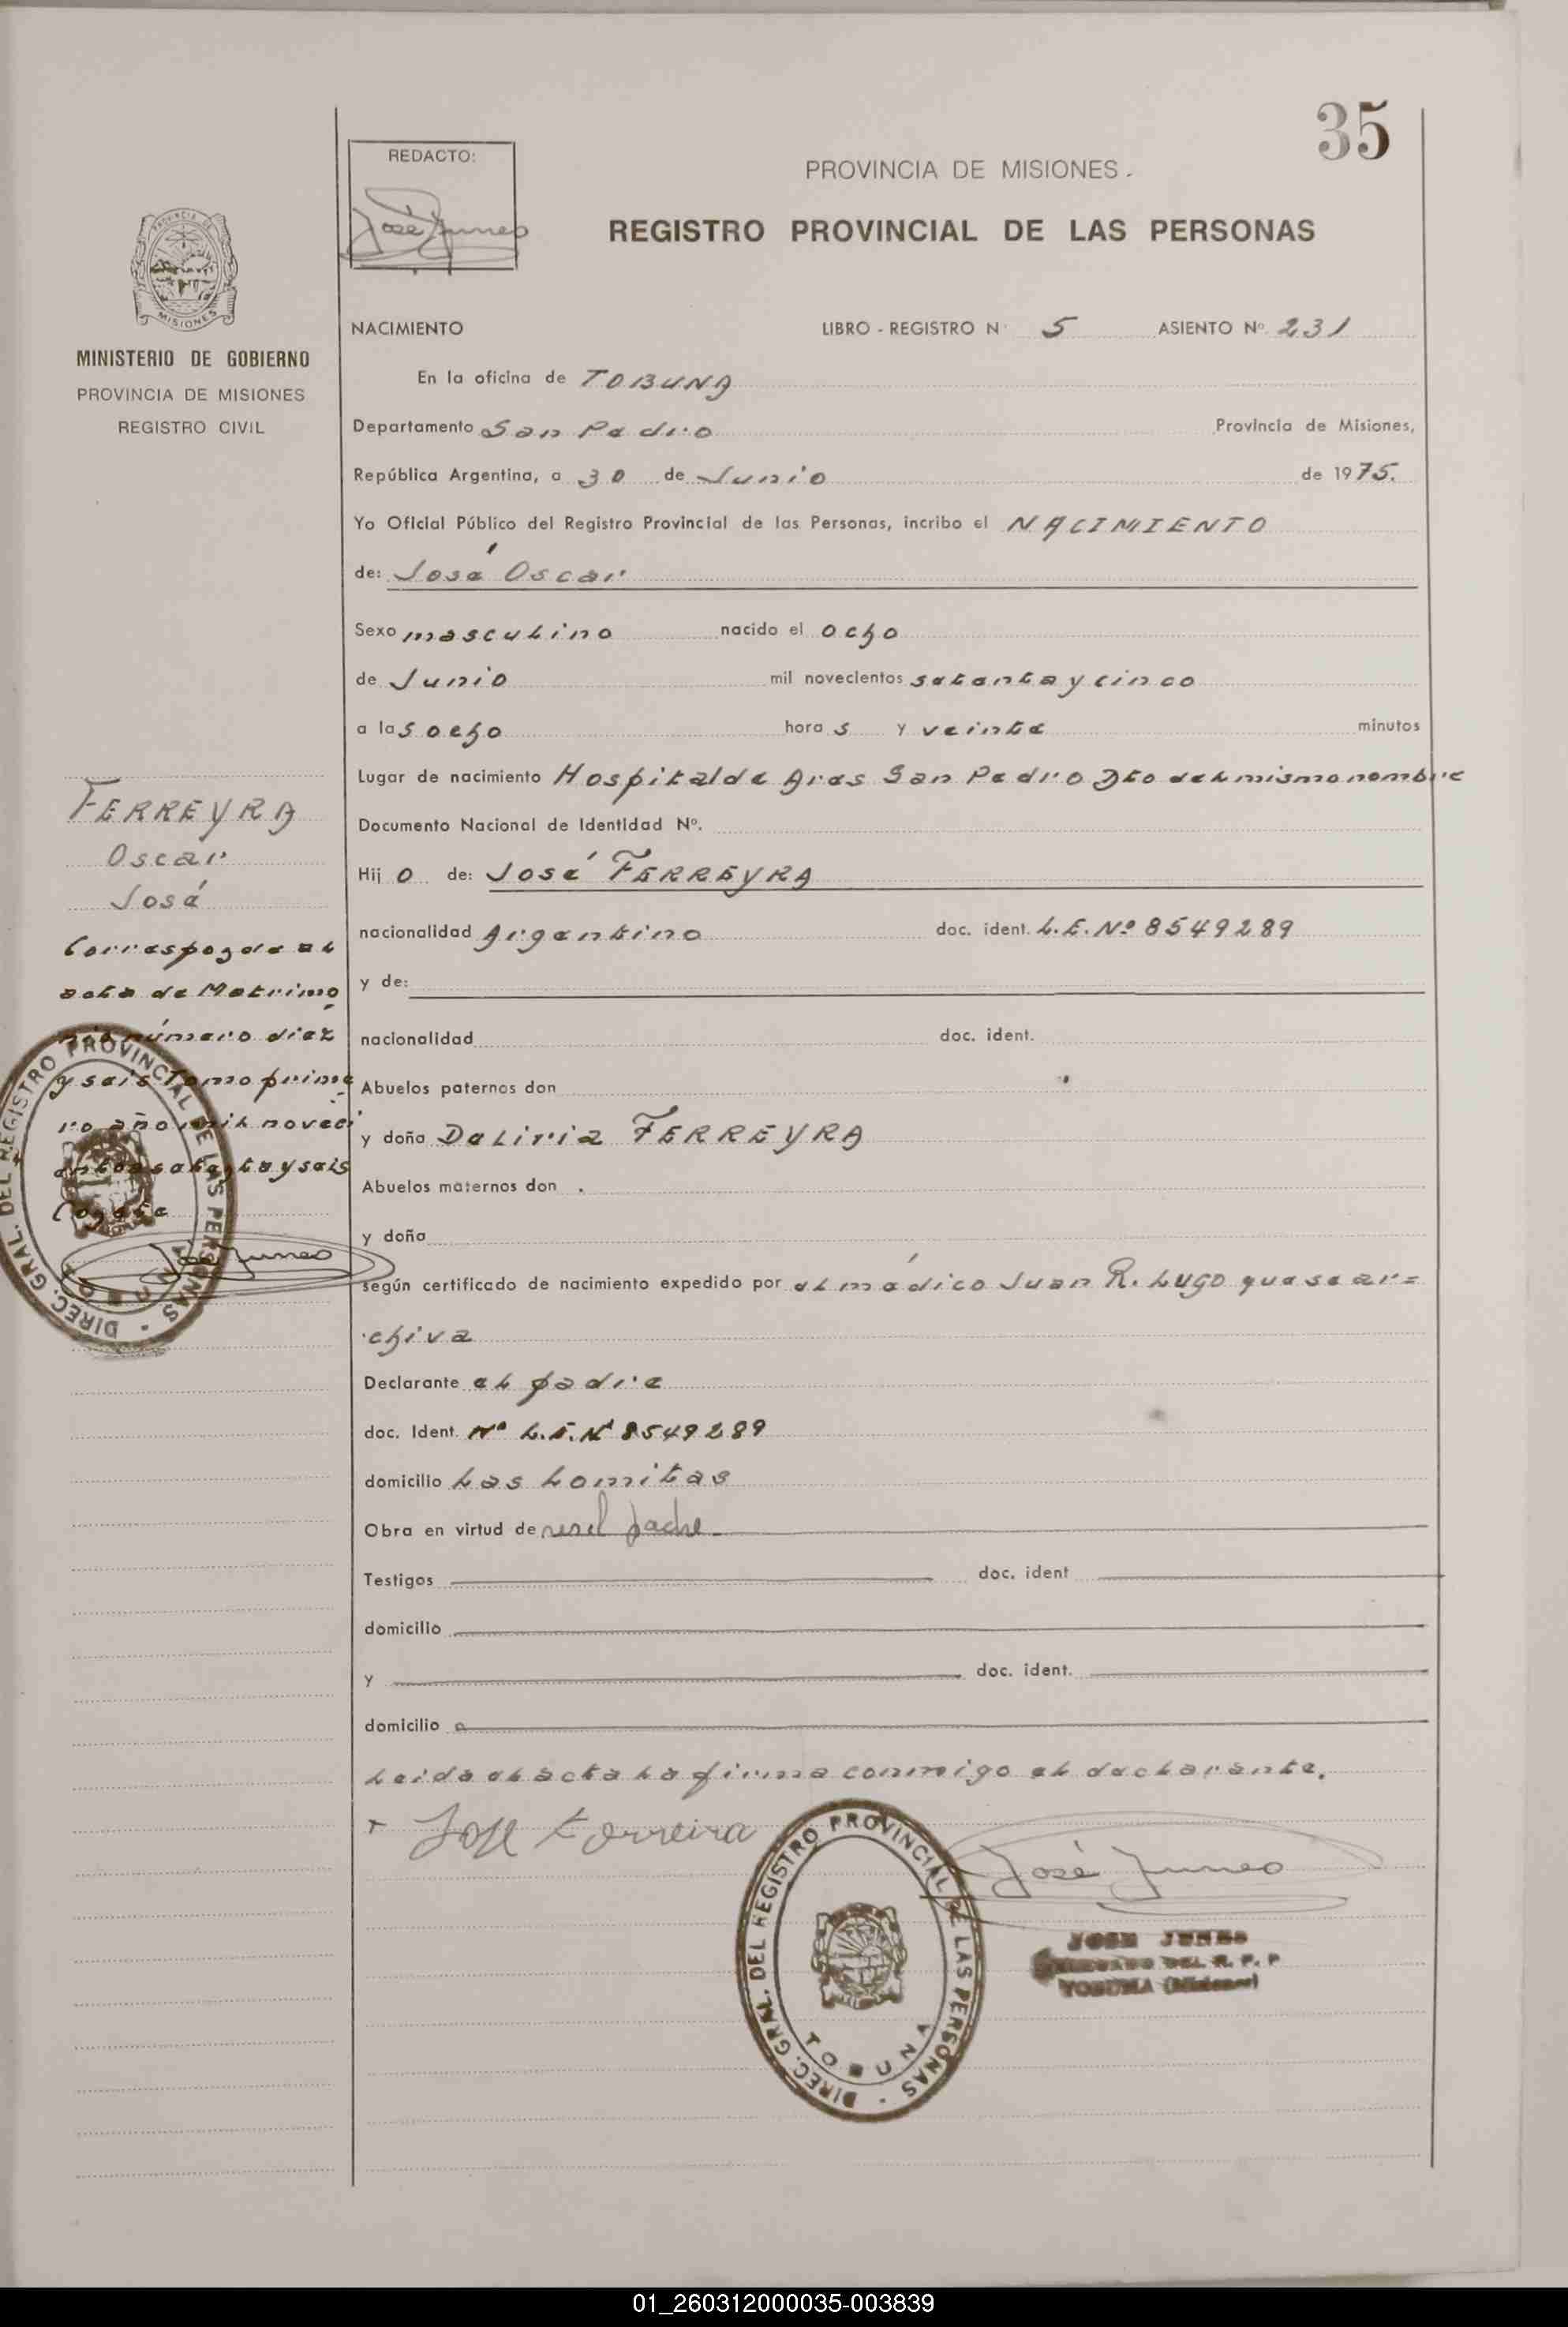 35
REDACTO:
José Junes
PROVINCIA DE MISIONES.
REGISTRO PROVINCIAL DE LAS PERSONAS
PROVINCIA DE
MISIONES
MINISTERIO DE GOBIERNO
PROVINCIA DE MISIONES
REGISTRO CIVIL
NACIMIENTO LIBRO - REGISTRO N° 5 ASIENTO N° 231
En la oficina de TOBUNA
Departamento San Pedro Provincia de Misiones,
República Argentina, a 30 de Junio de 1975.
Yo Oficial Público del Registro Provincial de las Personas, incribo el NACIMIENTO
de: José Oscar
Sexo masculino nacido el ocho
de Junio mil novecientos setenta y cinco
a las ocho horas y veinte minutos
Lugar de nacimiento Hospital de Area San Pedro Dto del mismo nombre
Documento Nacional de Identidad N°.
Hijo de: José FERREYRA
nacionalidad Argentino doc. ident. L.E. Nº 8549289
y de:
nacionalidad doc. ident.
Abuelos paternos don
y doña Deliria FERREYRA
Abuelos maternos don
y doña
según certificado de nacimiento expedido por el médico Juan R. Lugo que se ar=
chiva
Declarante el padre
doc. Ident. Nº L.E. Nº 8549289
domicilio Las Lomitas
Obra en virtud de ser el padre
Testigos doc. ident
domicilio
y doc. ident.
domicilio
Leida el acta la firma conmigo el declarante.
José Ferreira
José Junes
JOSE JUNES
DEL R. P. P
TOBUNA (Misiones)
DIREC. GRAL. DEL REGISTRO PROVINCIAL DE LAS PERSONAS -
TOBUNA
FERREYRA
Oscar
José
Correspoøde al
acta de Matrimo
nio número diez
y seis Tomo prime
ro año mil noveci
entos setenta y seis
Coøste
José Junes
DIREC. GRAL. DEL REGISTRO PROVINCIAL DE LAS PERSONAS -
TOBUNA
01_260312000035-003839